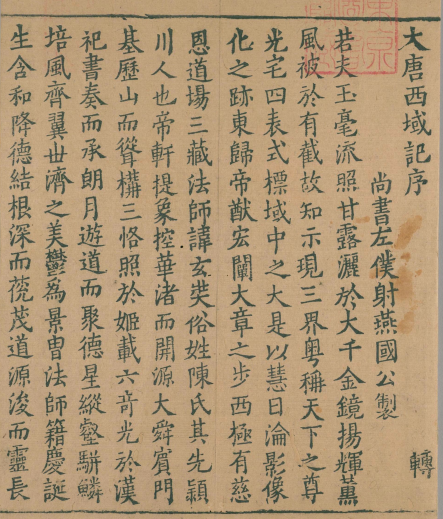 大唐西域記序 轉
尚書左僕射燕國公製
若夫玉毫流照甘露灑於大千金鏡揚輝薰
風被於有截故知示現三界粤稱天下之尊
光宅四表式標域中之大是以慧日淪影像
化之跡東歸帝猷宏闡大章之步西極有慈
恩道場三藏法師諱玄奘俗姓陳氏其先頴
川人也帝軒提象控華渚而開源大舜賓門
基歷山而聳構三恪照於姬載六奇光於漢
祀書奏而承朗月遊道而聚德星縱壑駢鱗
培風齊翼世濟之美鬱為景胄法師籍慶誕
生含和降德結根深而茂道源浚而靈長